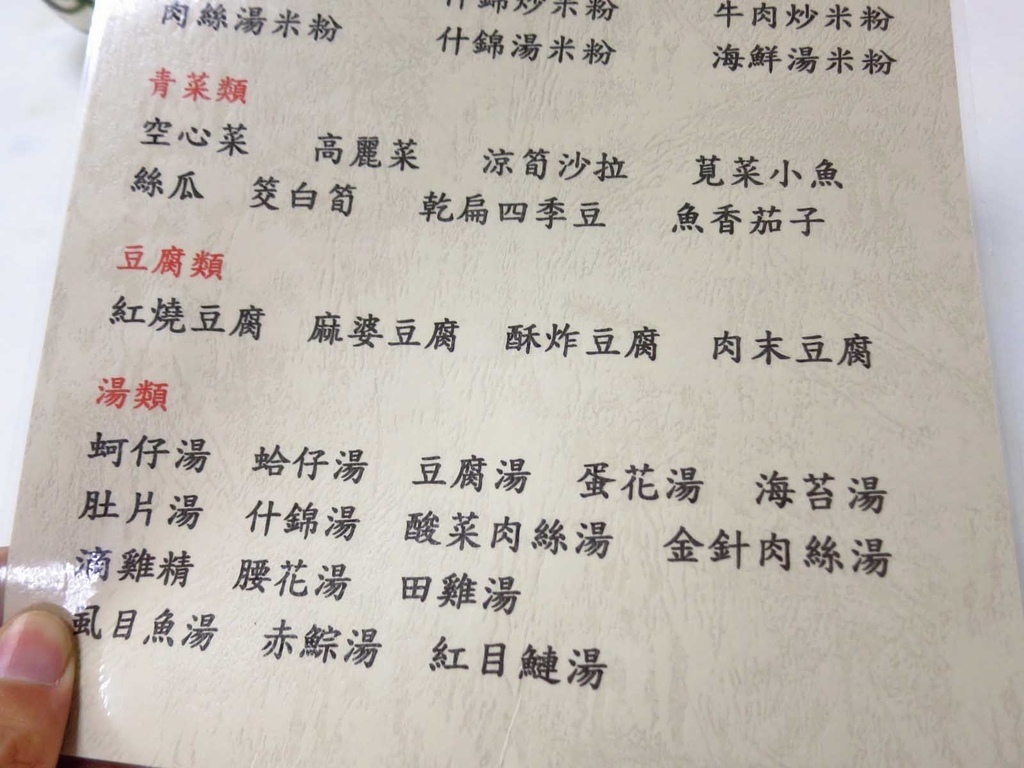 肉絲湯米粉 什錦炒米粉 牛肉炒米粉
什錦湯米粉 海鮮湯米粉
青菜類
空心菜 高麗菜 涼筍沙拉 莧菜小魚
絲瓜 筊白筍 乾扁四季豆 魚香茄子
豆腐類
紅燒豆腐 麻婆豆腐 酥炸豆腐 肉末豆腐
湯類
蚵仔湯 蛤仔湯 豆腐湯 蛋花湯 海苔湯
肚片湯 什錦湯 酸菜肉絲湯 金針肉絲湯
滴雞精 腰花湯 田雞湯
虱目魚湯 赤鯮湯 紅目鰱湯